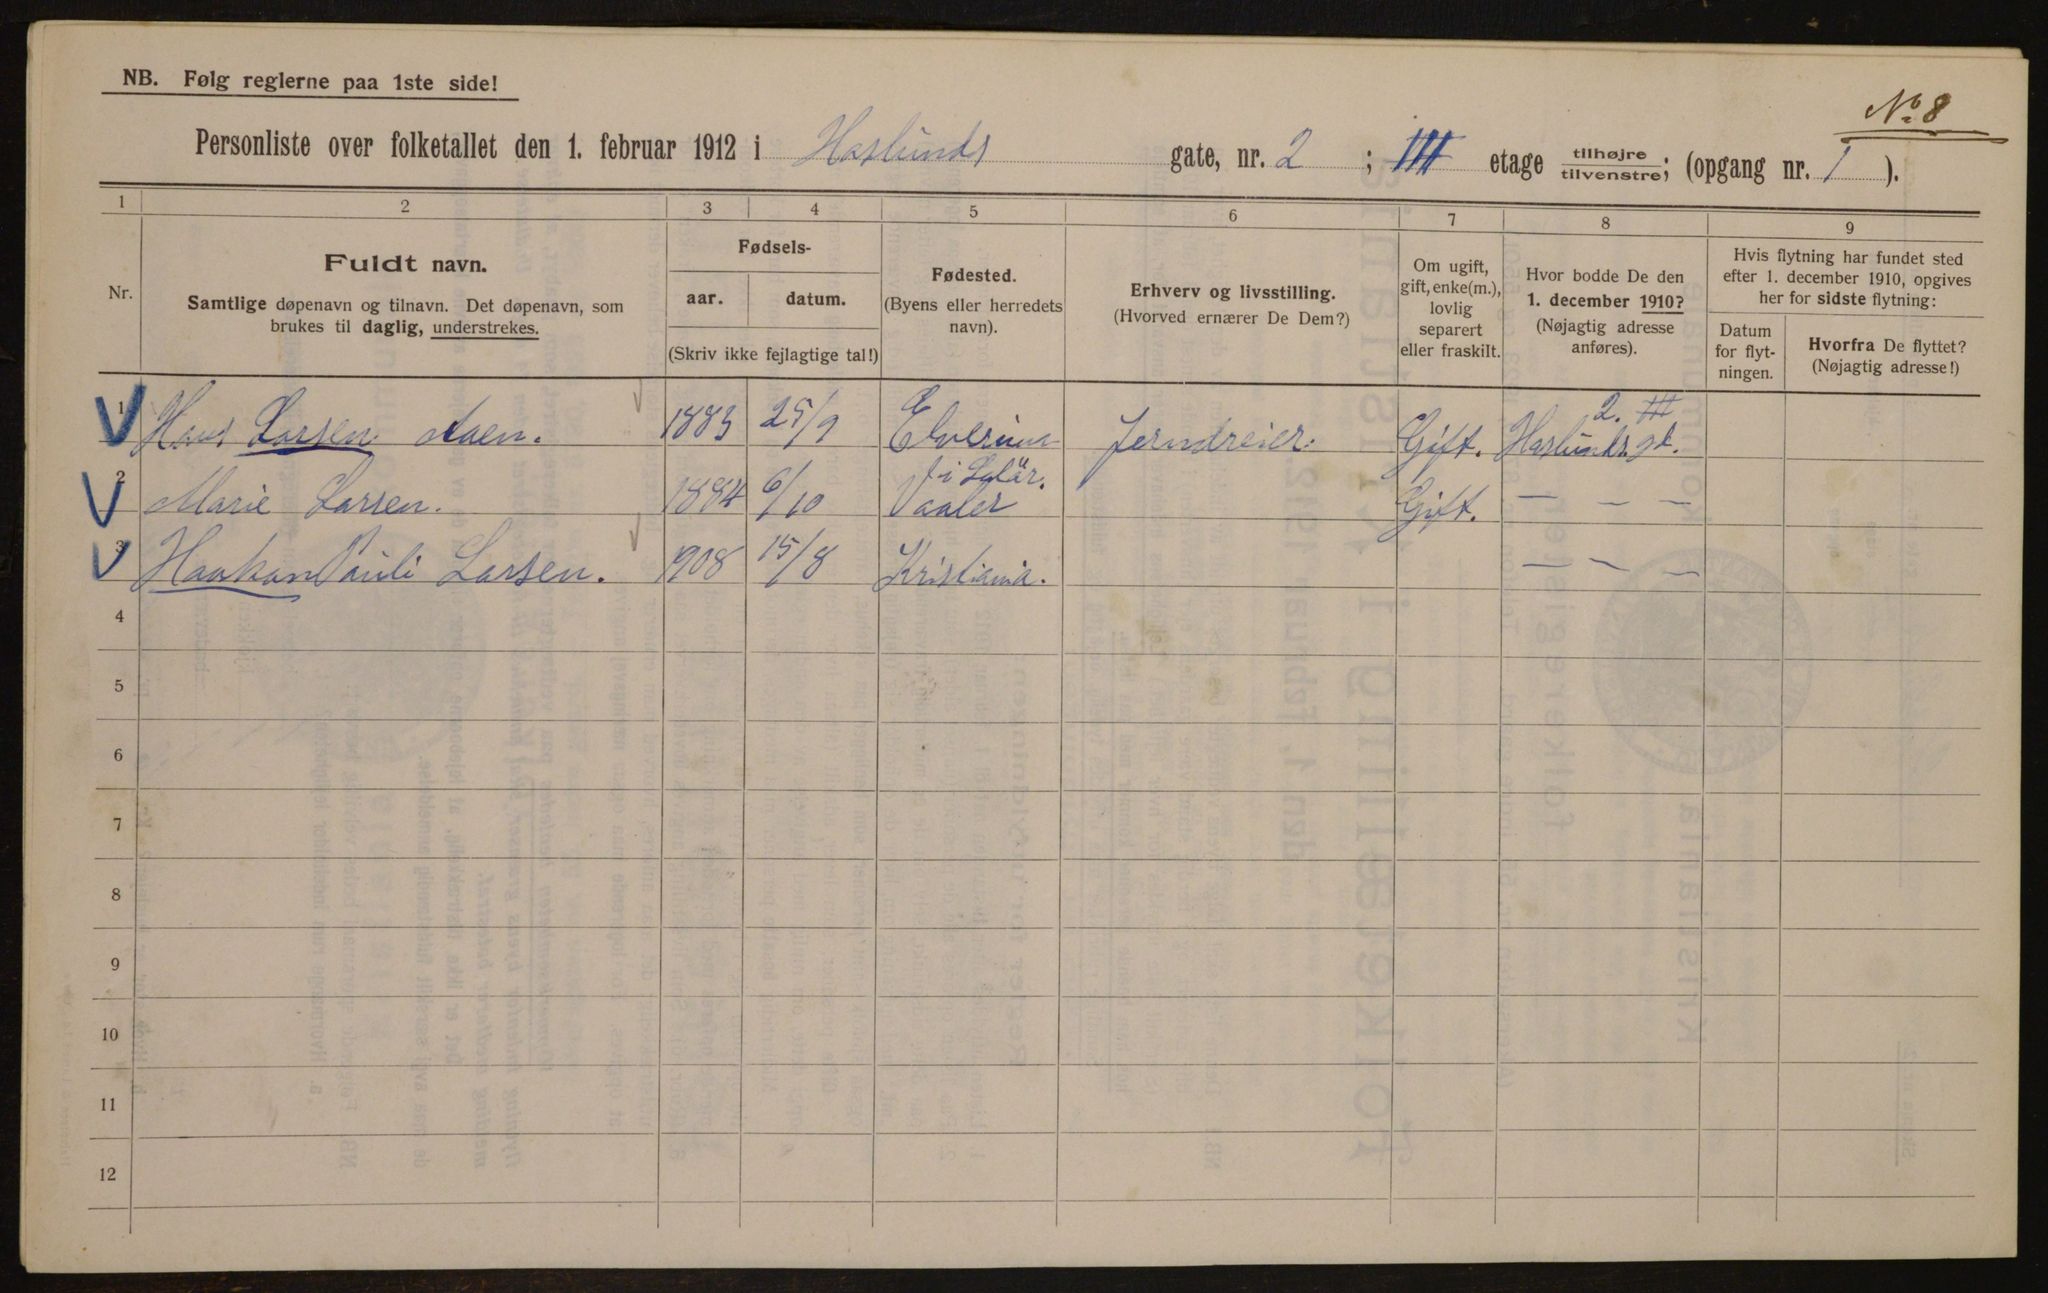 NB. Følg reglerne paa 1ste side!
No 8
Personliste over folketallet den 1. februar 1912 i Haslunds gate, nr. 2 ; III etage tilhøjre tilvenstre; (opgang nr. 1 ).
1 2 3 4 5 6 7 8 9
Nr.
Fuldt navn.
Samtlige døpenavn og tilnavn. Det døpenavn, som
brukes til daglig, understrekes.
Fødsels-
aar. datum.
(Skriv ikke fejlagtige tal!)
Fødested.
(Byens eller herredets
navn).
Erhverv og livsstilling.
(Hvorved ernærer De Dem?)
Om ugift,
gift, enke(m.),
lovlig
separert
eller fraskilt.
Hvor bodde De den
1. december 1910?
(Nøjagtig adresse
anføres).
Hvis flytning har fundet sted
efter 1. december 1910, opgives
her for sidste flytning:
Datum
for flyt-
ningen.
Hvorfra De flyttet?
(Nøjagtig adresse!)
1 Hans Larsen Aaen. 1883 25/9 Elverum Jerndreier. Gift. Haslunds gt. 2. III
2 Marie Larsen. 1884 6/10 Vaaler i Solør. Gift. — — —
3 Haakon Pauli Larsen. 1908 15/8 Kristiania. — — —
4
5
6
7
8
9
10
11
12